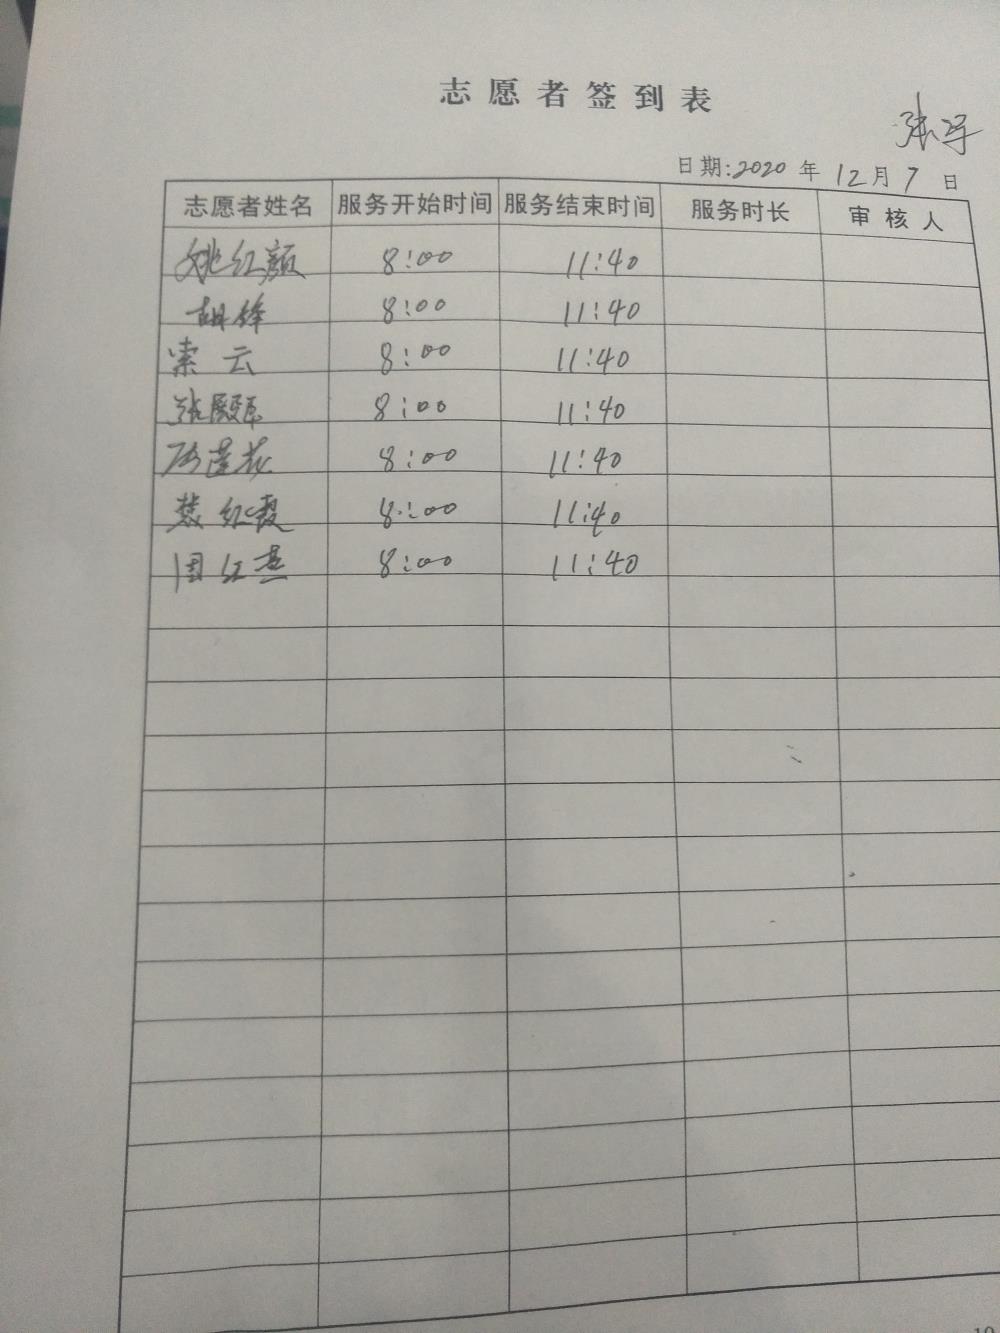 志愿者签到表
张宇
日期:2020年12月7日
志愿者姓名 服务开始时间 服务结束时间 服务时长 审核人
姚红颜 8:00 11:40
胡锋 8:00 11:40
索云 8:00 11:40
张殿臣 8:00 11:40
莲花 8:00 11:40
红霞 8:00 11:40
周红燕 8:00 11:40